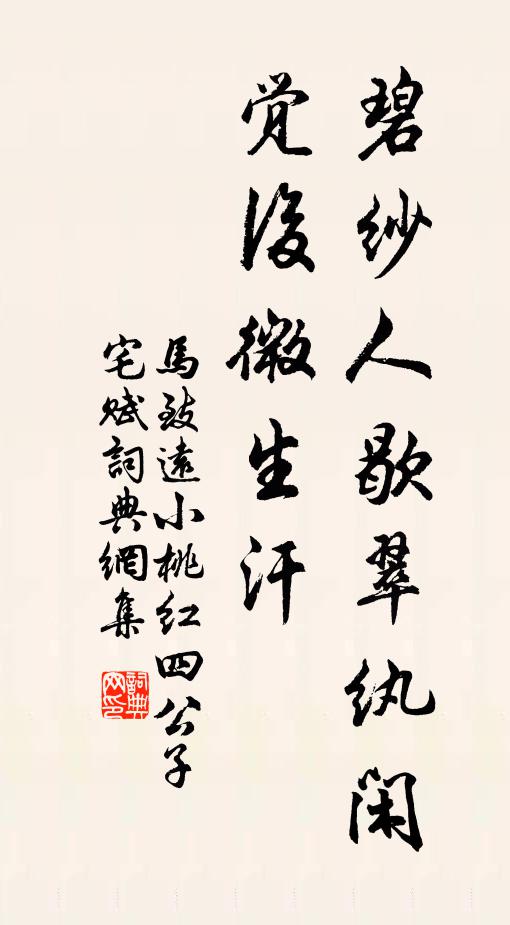 碧纱人歇翠纨闲
觉後微生汗
馬致遠小桃红四公子
宅赋詞典網集
詞典网印